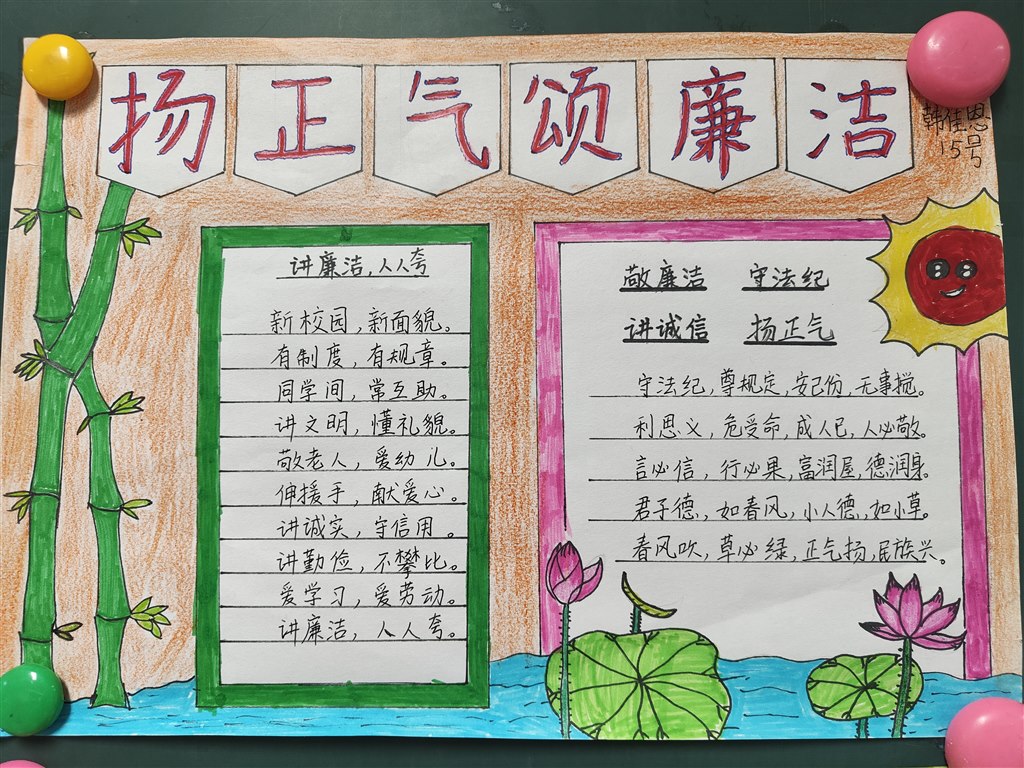 扬正气颂廉洁
韩佳恩
15号
讲廉洁,人人夸
新校园,新面貌。
有制度,有规章。
同学间,常互助。
讲文明,懂礼貌。
敬老人,爱幼儿。
伸援手,献爱心。
讲诚实,守信用。
讲勤俭,不攀比。
爱学习,爱劳动。
讲廉洁,人人夸。
敬廉洁 守法纪
讲诚信 扬正气
守法纪,尊规定,安己份,无事搅。
利思义,危受命,成人已,人必敬。
言必信,行必果,富润屋,德润身。
君子德,如春风,小人德,如小草。
春风吹,草必绿,正气扬,民族兴。